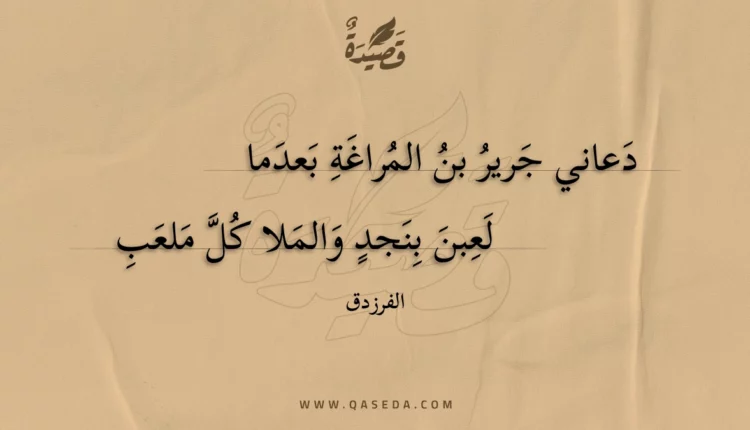 قَصِيدَةٌ
دَعاني جَريرُ بنُ المُراغَةِ بَعدَما
لَعِبنَ بِنَجدٍ وَالمَلا كُلَّ مَلعَبِ
الفرزدق
WWW.QASEDA.COM